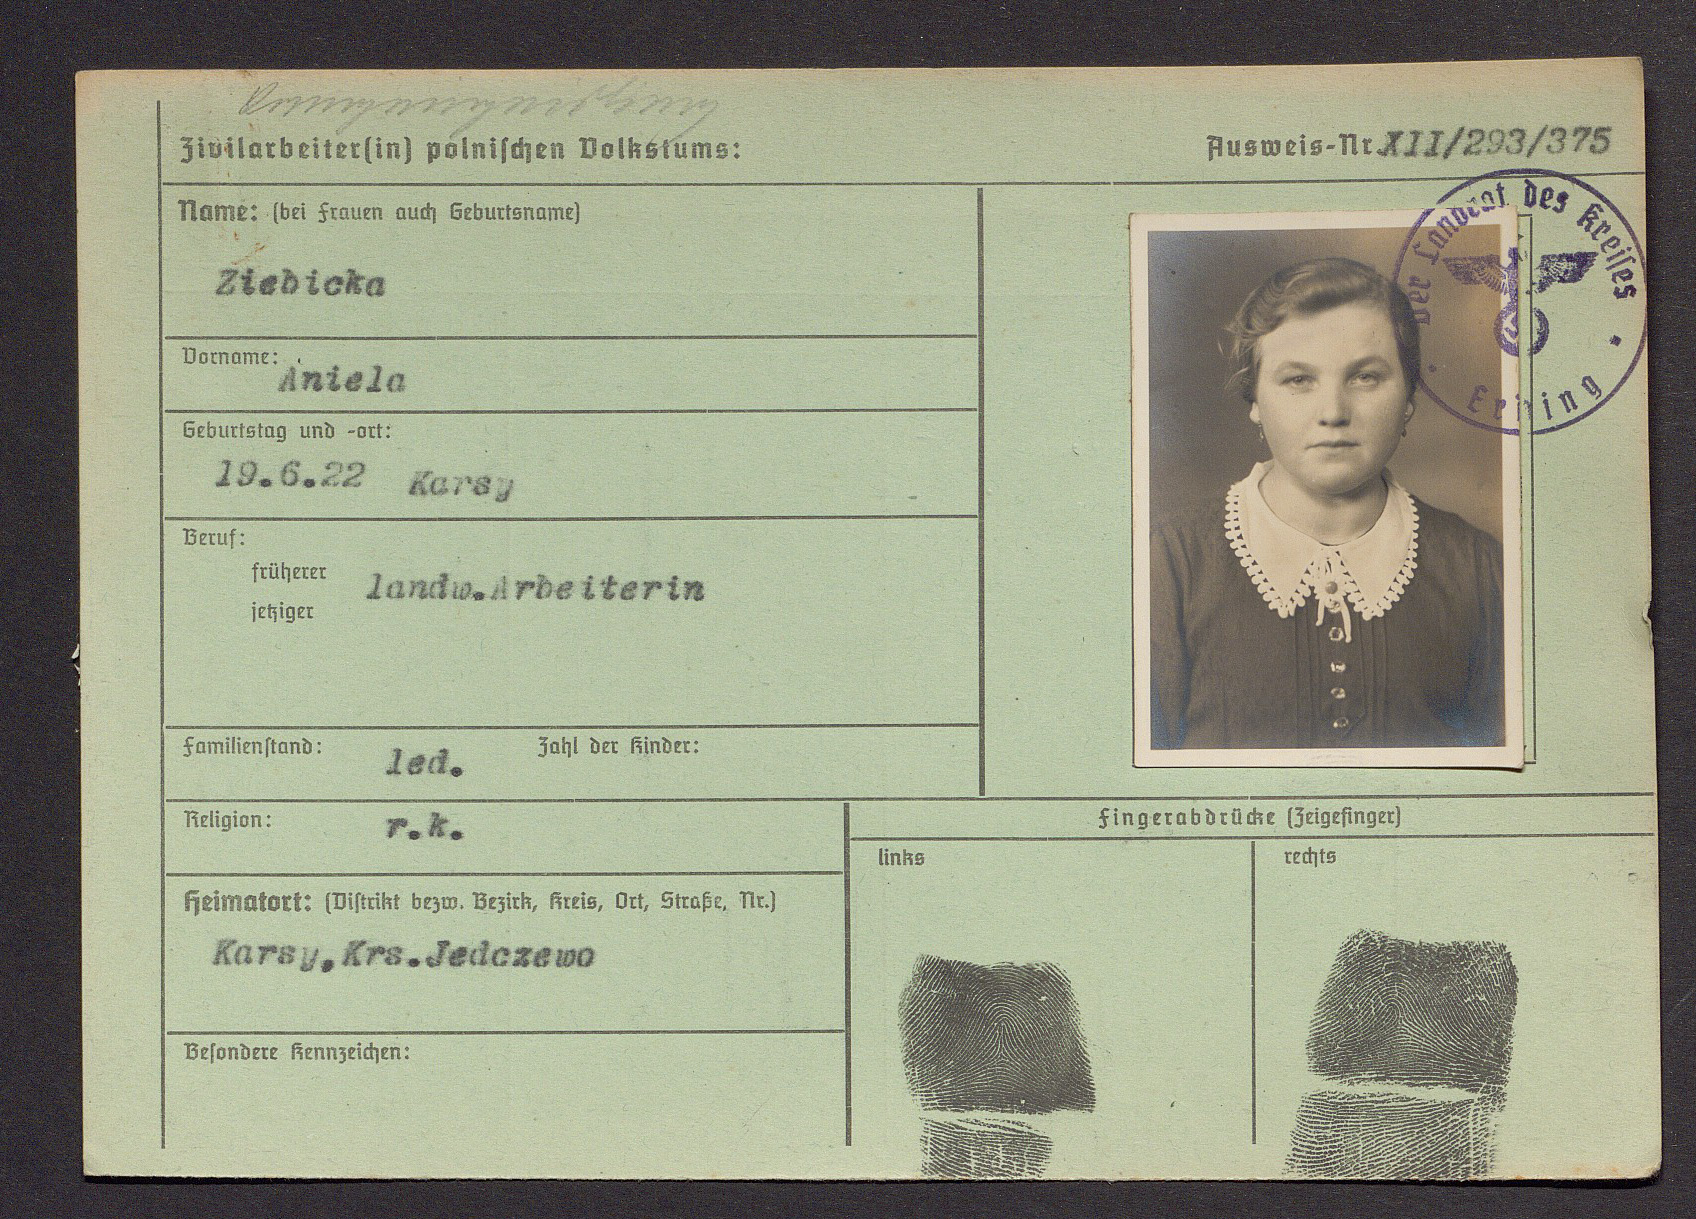 Zivilarbeiter(in) polnischen Volkstums:
Ausweis-Nr. XII/293/375
Name: (bei Frauen auch Geburtsname)
Ziebicka
Vorname:
Aniela
Geburtstag und -ort:
19.6.22 Karsy
Beruf:
früherer
landw.Arbeiterin
jetziger
Familienstand: led. Zahl der Kinder:
Religion: r.k.
Heimatort: (Distrikt bezw. Bezirk, Kreis, Ort, Straße, Nr.)
Karsy,Krs.Jedczewo
Besondere Kennzeichen:
Der Landrat des Kreises
Erding
Fingerabdrücke (Zeigefinger)
links
rechts